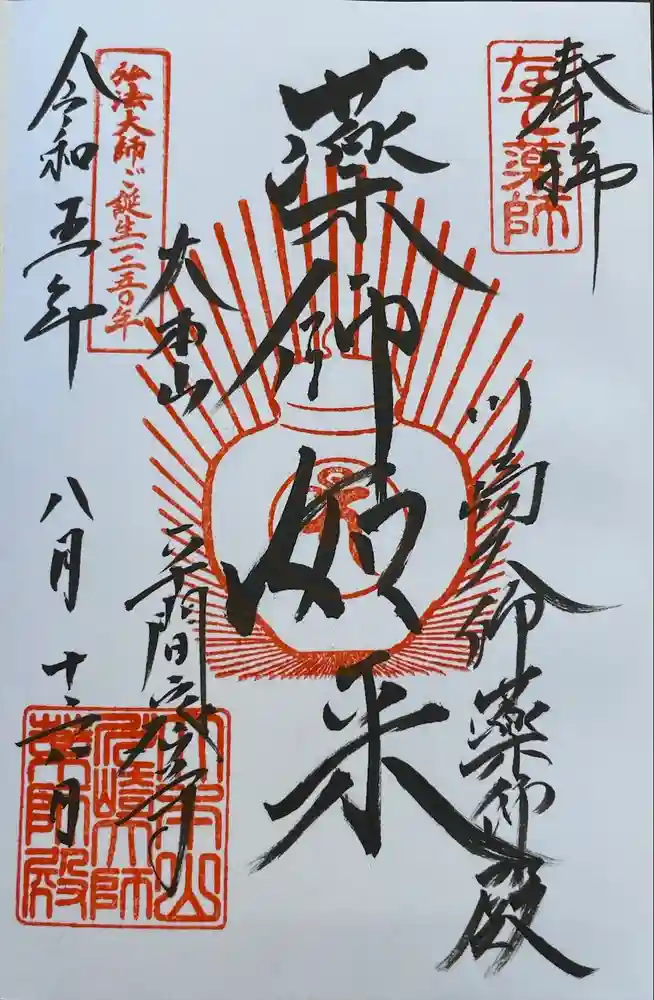 奉拝
なで薬師
川崎大師薬師殿
薬師如来
大本山
平間寺
弘法大師ご誕生一二五〇年
令和五年
八月
大本山
川崎大師
薬師殿